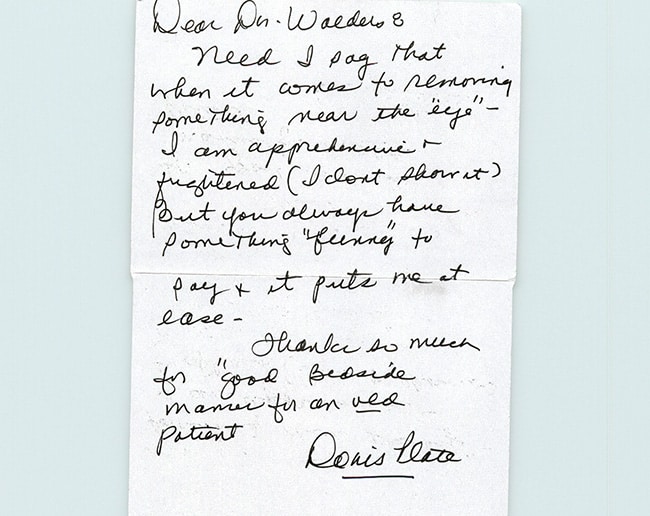 Dear Dr. Walders:
Need I say that
when it comes to removing
something near the "eye" -
I am apprehensive +
frightened (I dont show it)
But you always have
something "funny" to
say + it puts me at
ease -
Thanks so much
for "good Bedside
manner for an old
patient